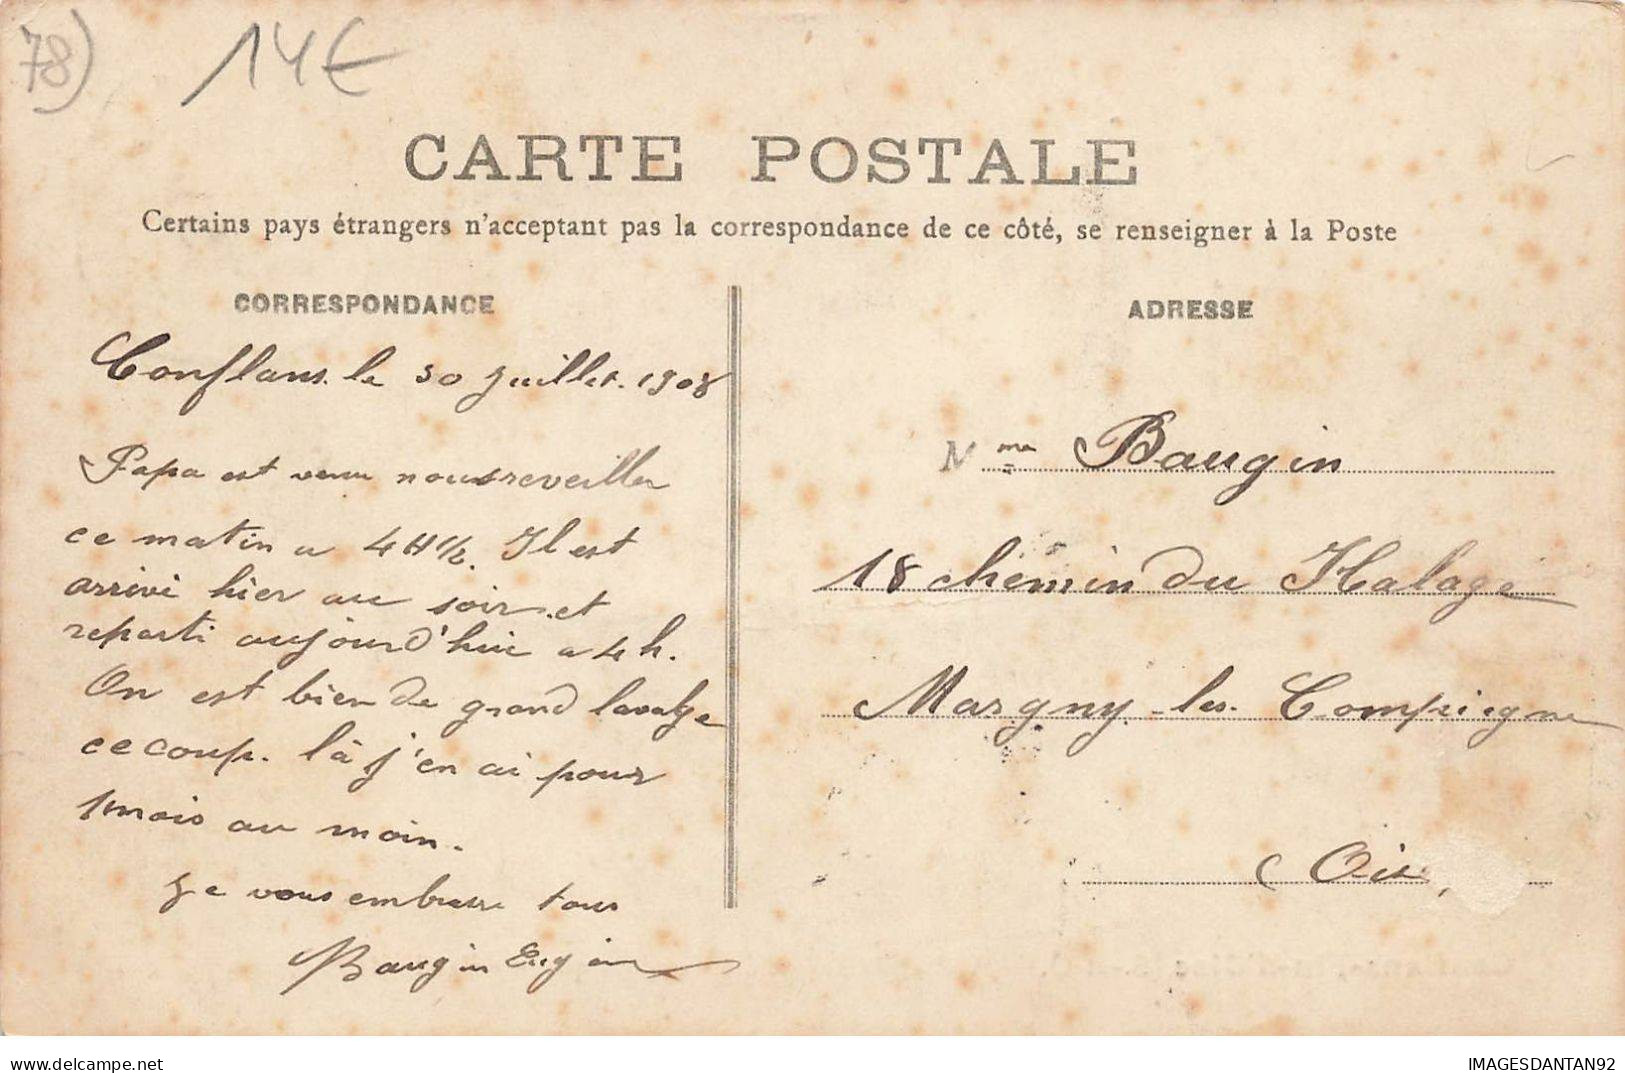 78)
14€
CARTE POSTALE
Certains pays étrangers n'acceptant pas la correspondance de ce côté, se renseigner à la Poste
CORRESPONDANCE
Conflans. le 30 Juillet. 1908
Papa est venu nous reveiller
ce matin a 4H1/2. Il est
arrivé hier au soir et
reparti aujourd'hui a 4h.
On est bien de grand lavage
ce coup. là j'en ai pour
1 mois au moin.
Je vous embrasse tous
Baugin Eugène
ADRESSE
Mme Baugin
18 chemin du Halage
Margny-les-Compiegne
(Oise
IMAGESDANTAN92
delcampe.net